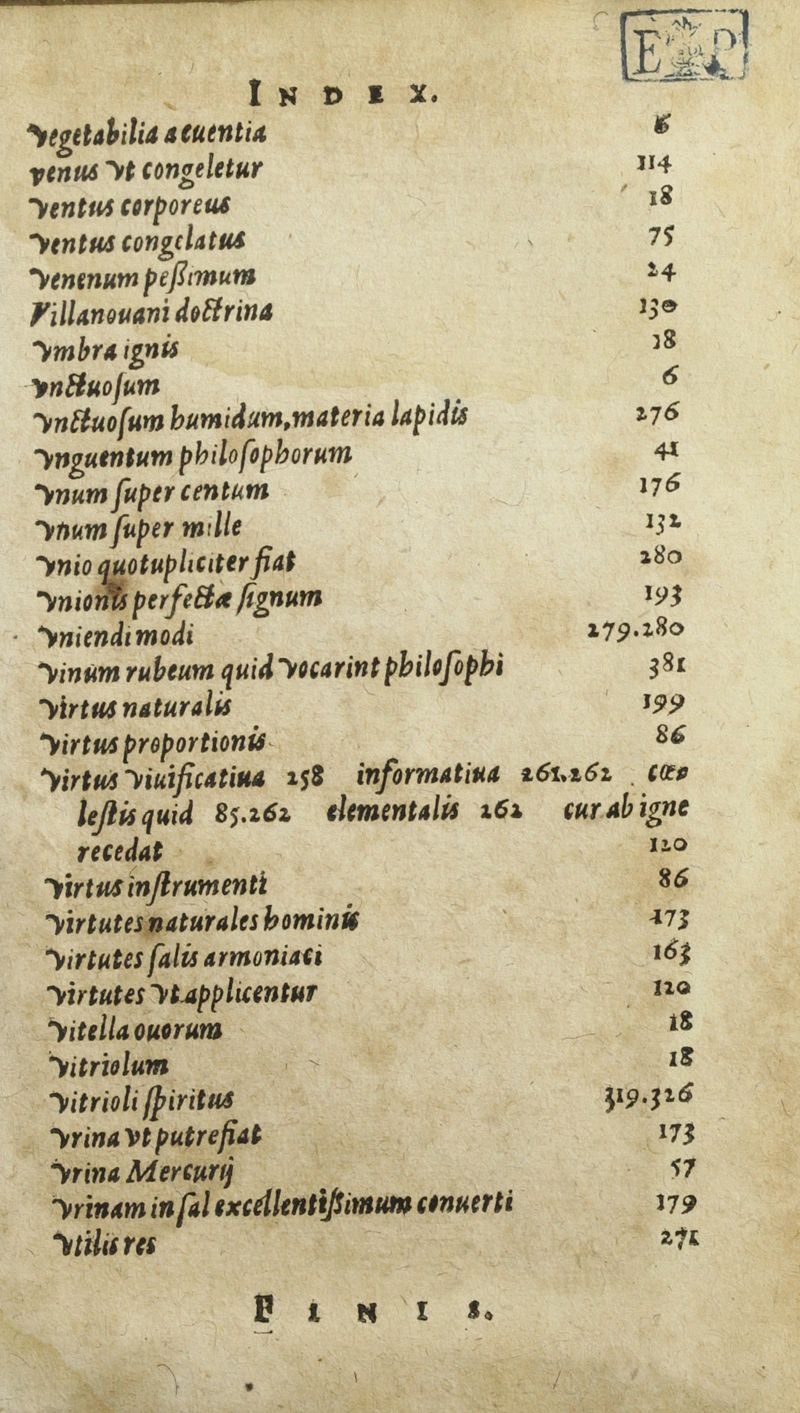 E P
INDEX.
Vegetabilia acuentia 6
venus vt congeletur 114
Ventus corporeus 18
Ventus congelatus 75
Venenum peßimum 24
Villanouani doctrina 130
Vmbra ignis 18
vnctuoſum 6
Vnctuoſum humidum, materia lapidis 276
Vnguentum philoſophorum 41
Vnum ſuper centum 176
Vnum ſuper mille 132
Vnio quotupliciter fiat 280
Vnionis perfectæ ſignum 193
Vniendi modi 279.280
Vinum rubeum quid vocarint philoſophi 381
Virtus naturalis 199
Virtus proportionis 86
Virtus viuificatiua 258 informatiua 261.262 cœ⸗
leſtis quid 85.262 elementalis 262 cur ab igne
recedat 120
Virtus inſtrumenti 86
Virtutes naturales hominis 173
Virtutes ſalis armoniaci 163
Virtutes vt applicentur 120
Vitella ouorum 18
Vitriolum 18
Vitrioli ſpiritus 319.326
Vrina vt putrefiat 173
Vrina Mercurij 57
Vrinam in ſal excellentißimum conuerti 179
Vtilis res 271
FINIS.